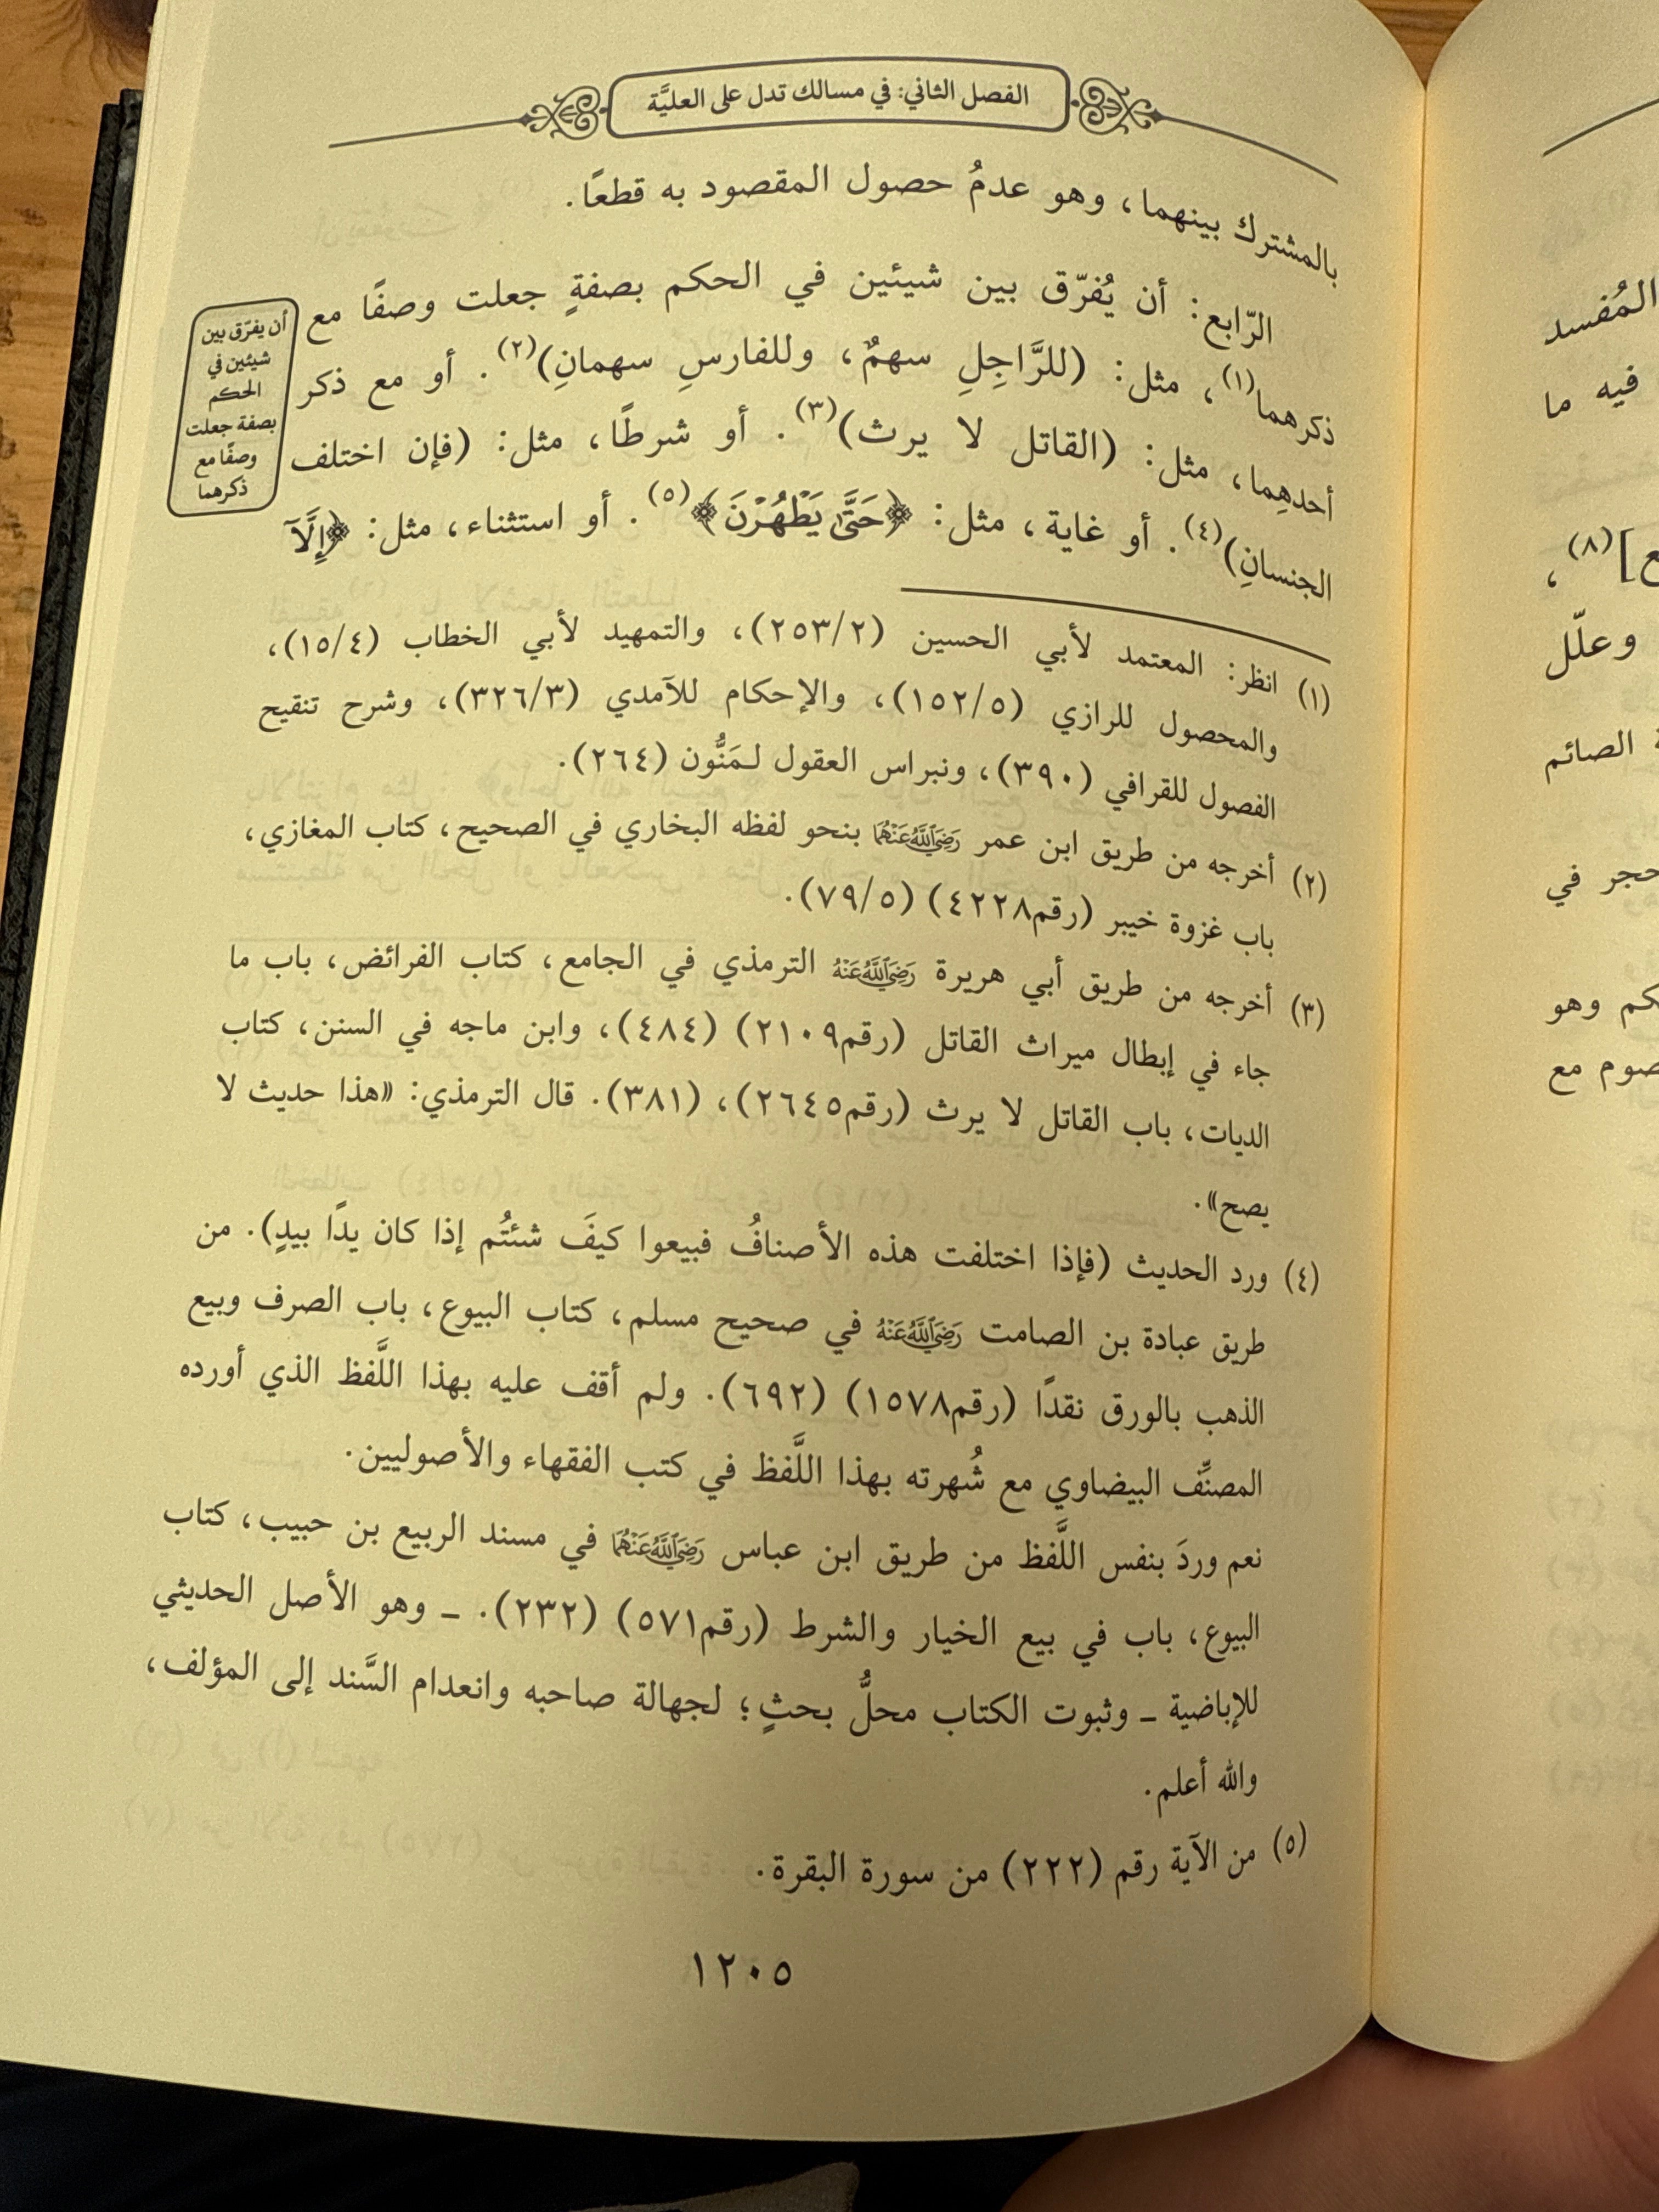 الفصل الثاني: في مسالك تدل على العليَّة
بالمشترك بينهما، وهو عدمُ حصول المقصود به قطعًا.
الرّابع: أن يُفرّق بين شيئين في الحكم بصفةٍ جعلت وصفًا مع
ذكرهما(١)، مثل: (للرَّاجِلِ سهمٌ، وللفارسِ سهمانِ)(٢). أو مع ذكر
أحدهِما، مثل: (القاتل لا يرث)(٣). أو شرطًا، مثل: (فإن اختلف
الجنسانِ)(٤). أو غاية، مثل: ﴿حَتَّىٰ يَطْهُرْنَ﴾(٥). أو استثناء، مثل: ﴿إِلَّآ
أن يفرّق بين
شيئين في
الحكم
بصفة جعلت
وصفًا مع
ذكرهما
(١) انظر: المعتمد لأبي الحسين (٢٥٣/٢)، والتمهيد لأبي الخطاب (١٥/٤)،
والمحصول للرازي (١٥٢/٥)، والإحكام للآمدي (٣٢٦/٣)، وشرح تنقيح
الفصول للقرافي (٣٩٠)، ونبراس العقول لـمَنُّون (٢٦٤).
(٢) أخرجه من طريق ابن عمر رَضِيَاللَّهُعَنْهُمَا بنحو لفظه البخاري في الصحيح، كتاب المغازي،
باب غزوة خيبر (رقم٤٢٢٨) (٧٩/٥).
(٣) أخرجه من طريق أبي هريرة رَضِيَاللَّهُعَنْهُ الترمذي في الجامع، كتاب الفرائض، باب ما
جاء في إبطال ميراث القاتل (رقم٢١٠٩) (٤٨٤)، وابن ماجه في السنن، كتاب
الديات، باب القاتل لا يرث (رقم٢٦٤٥)، (٣٨١). قال الترمذي: «هذا حديث لا
يصح».
(٤) ورد الحديث (فإذا اختلفت هذه الأصنافُ فبيعوا كيفَ شئتُم إذا كان يدًا بيدٍ). من
طريق عبادة بن الصامت رَضِيَاللَّهُعَنْهُ في صحيح مسلم، كتاب البيوع، باب الصرف وبيع
الذهب بالورق نقدًا (رقم١٥٧٨) (٦٩٢). ولم أقف عليه بهذا اللَّفظ الذي أورده
المصنِّف البيضاوي مع شُهرته بهذا اللَّفظ في كتب الفقهاء والأصوليين.
نعم وردَ بنفس اللَّفظ من طريق ابن عباس رَضِيَاللَّهُعَنْهُمَا في مسند الربيع بن حبيب، كتاب
البيوع، باب في بيع الخيار والشرط (رقم٥٧١) (٢٣٢). ـ وهو الأصل الحديثي
للإباضية ـ وثبوت الكتاب محلُّ بحثٍ؛ لجهالة صاحبه وانعدام السَّند إلى المؤلف،
والله أعلم.
(٥) من الآية رقم (٢٢٢) من سورة البقرة.
١٢٠٥
المُفسد
فيه ما
(٨)،
وعلّل
الصائم
حجر في
وهو
مع